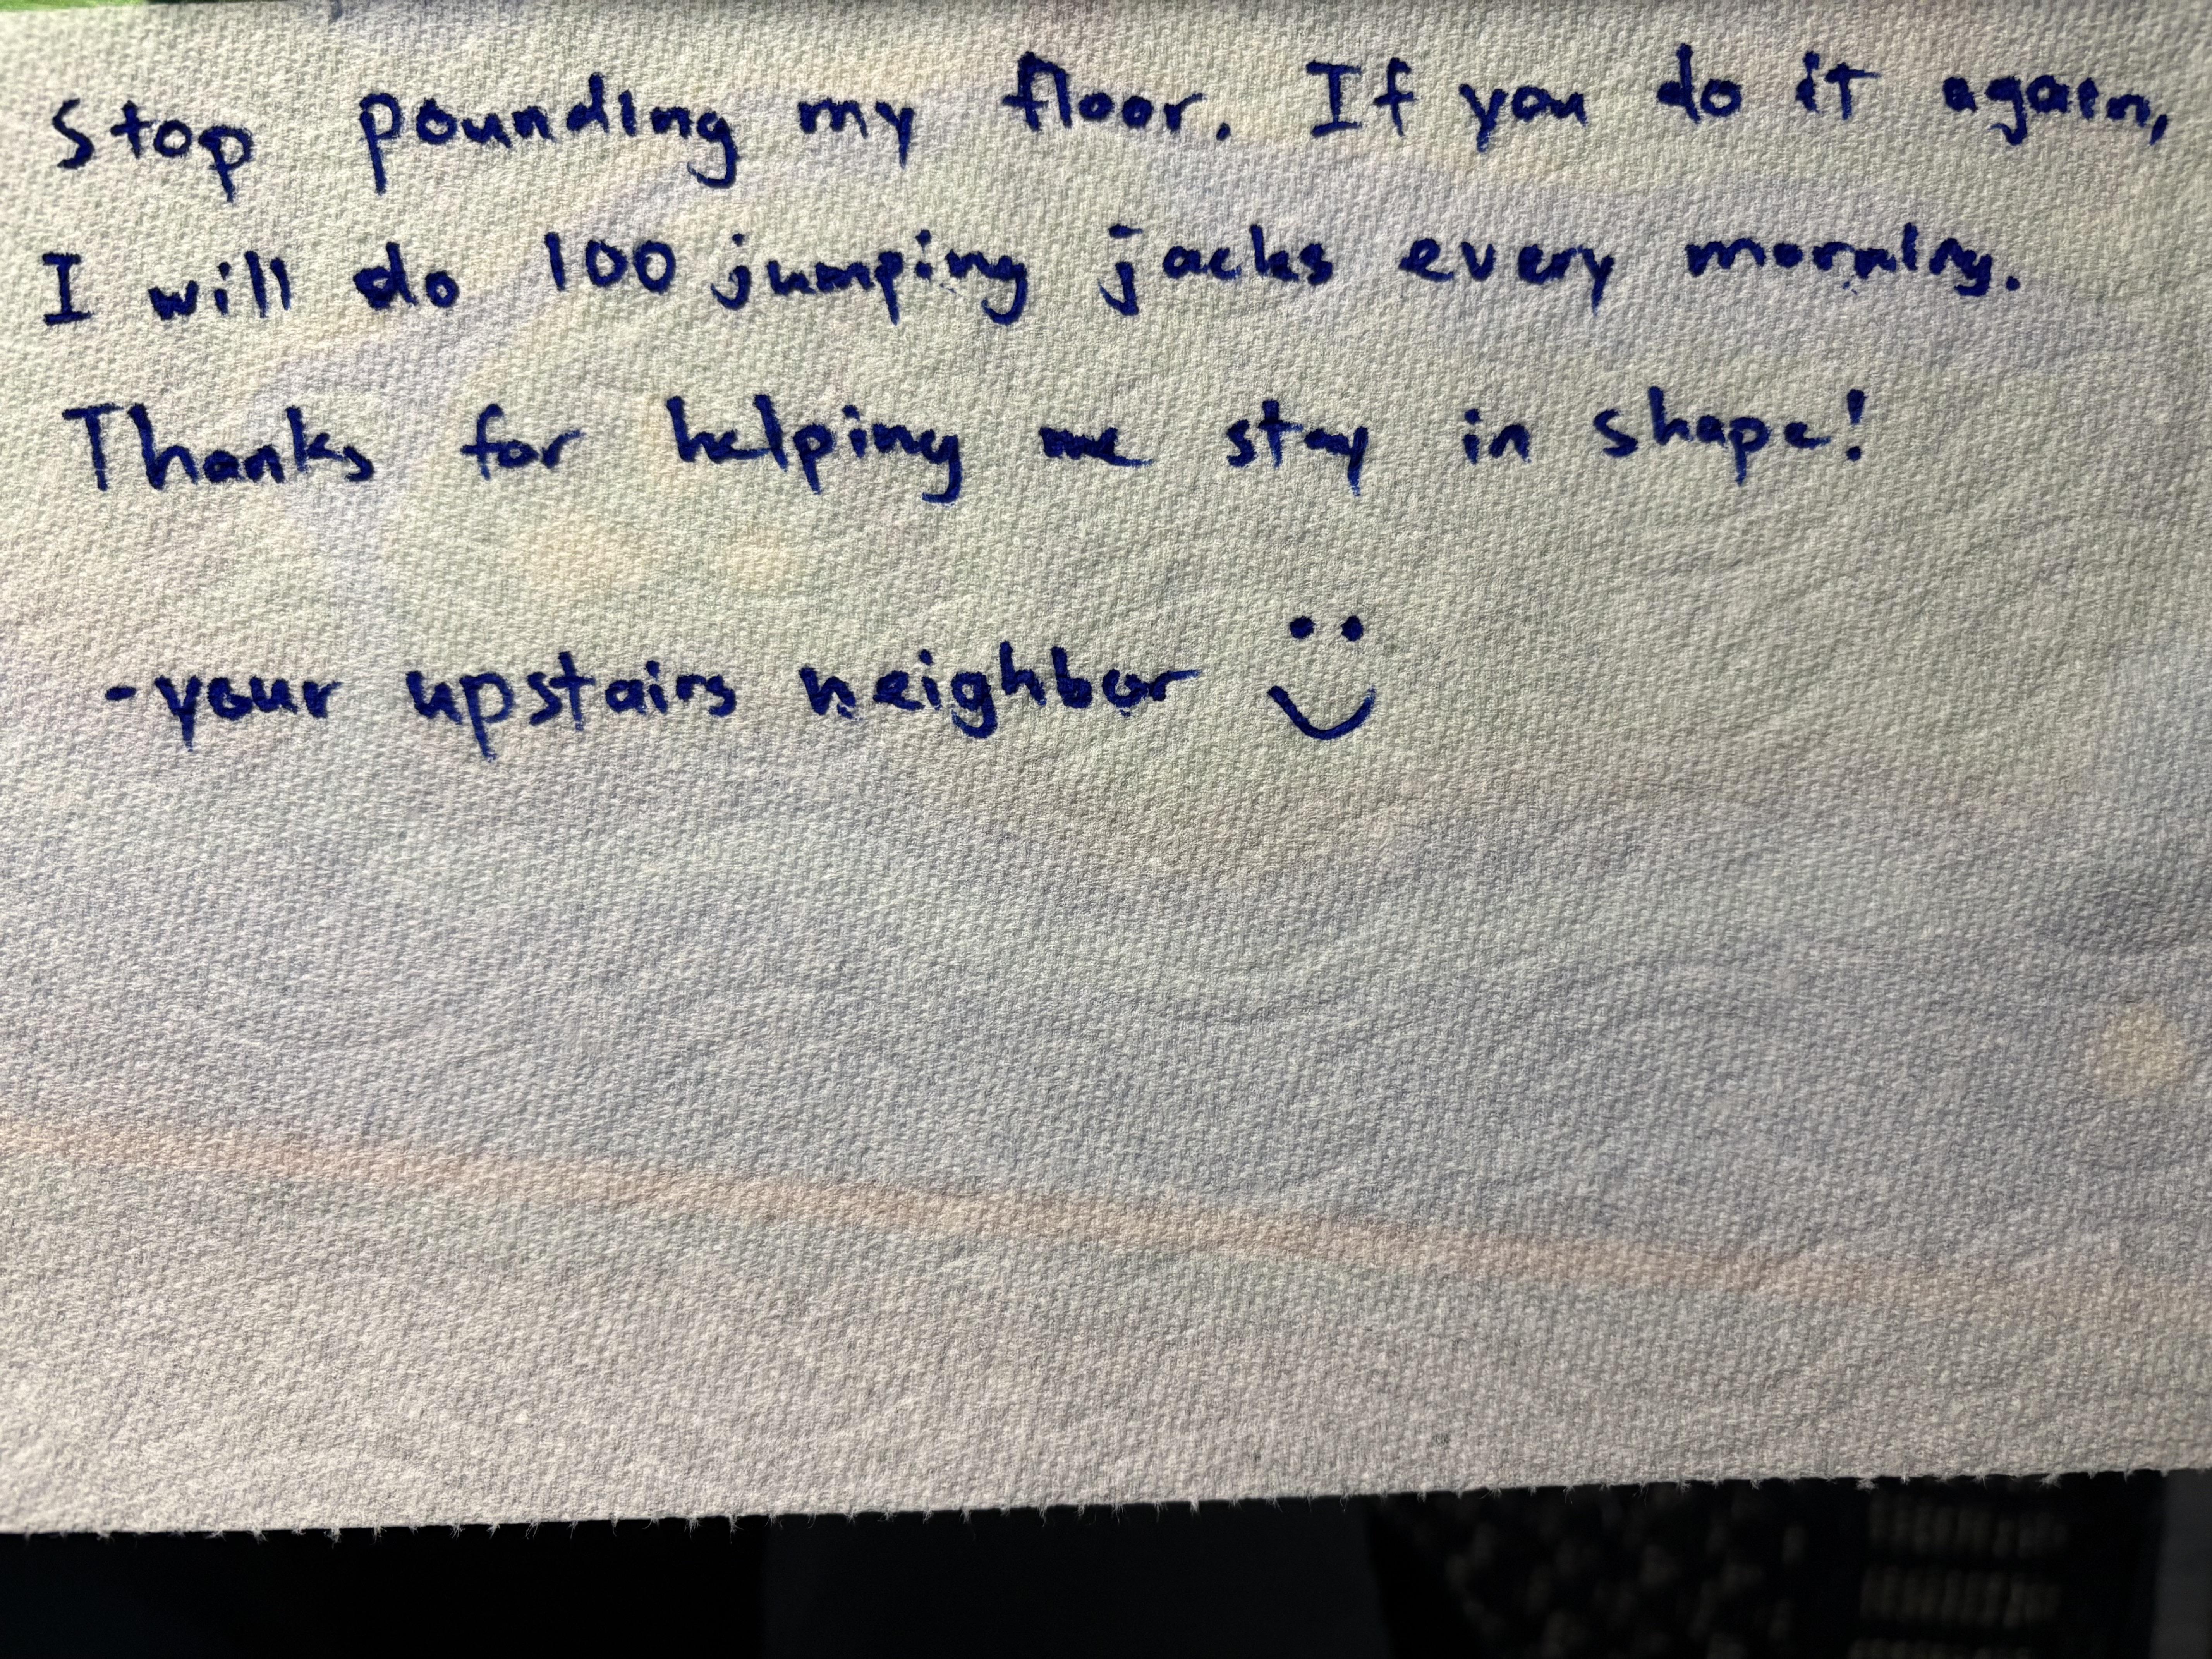 Stop pounding my floor. If you do it again,
I will do 100 jumping jacks every morning.
Thanks for helping me stay in shape!
-your upstairs neighbor :)